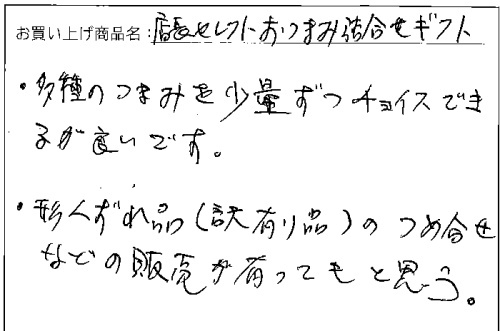 お買い上げ商品名：店長セレクトおつまみ詰合せギフト
・多種のつまみを少量ずつチョイスでき
るが良いです。
・形くずれ品（訳有り品）のつめ合せ
などの販売が有ってもと思う。